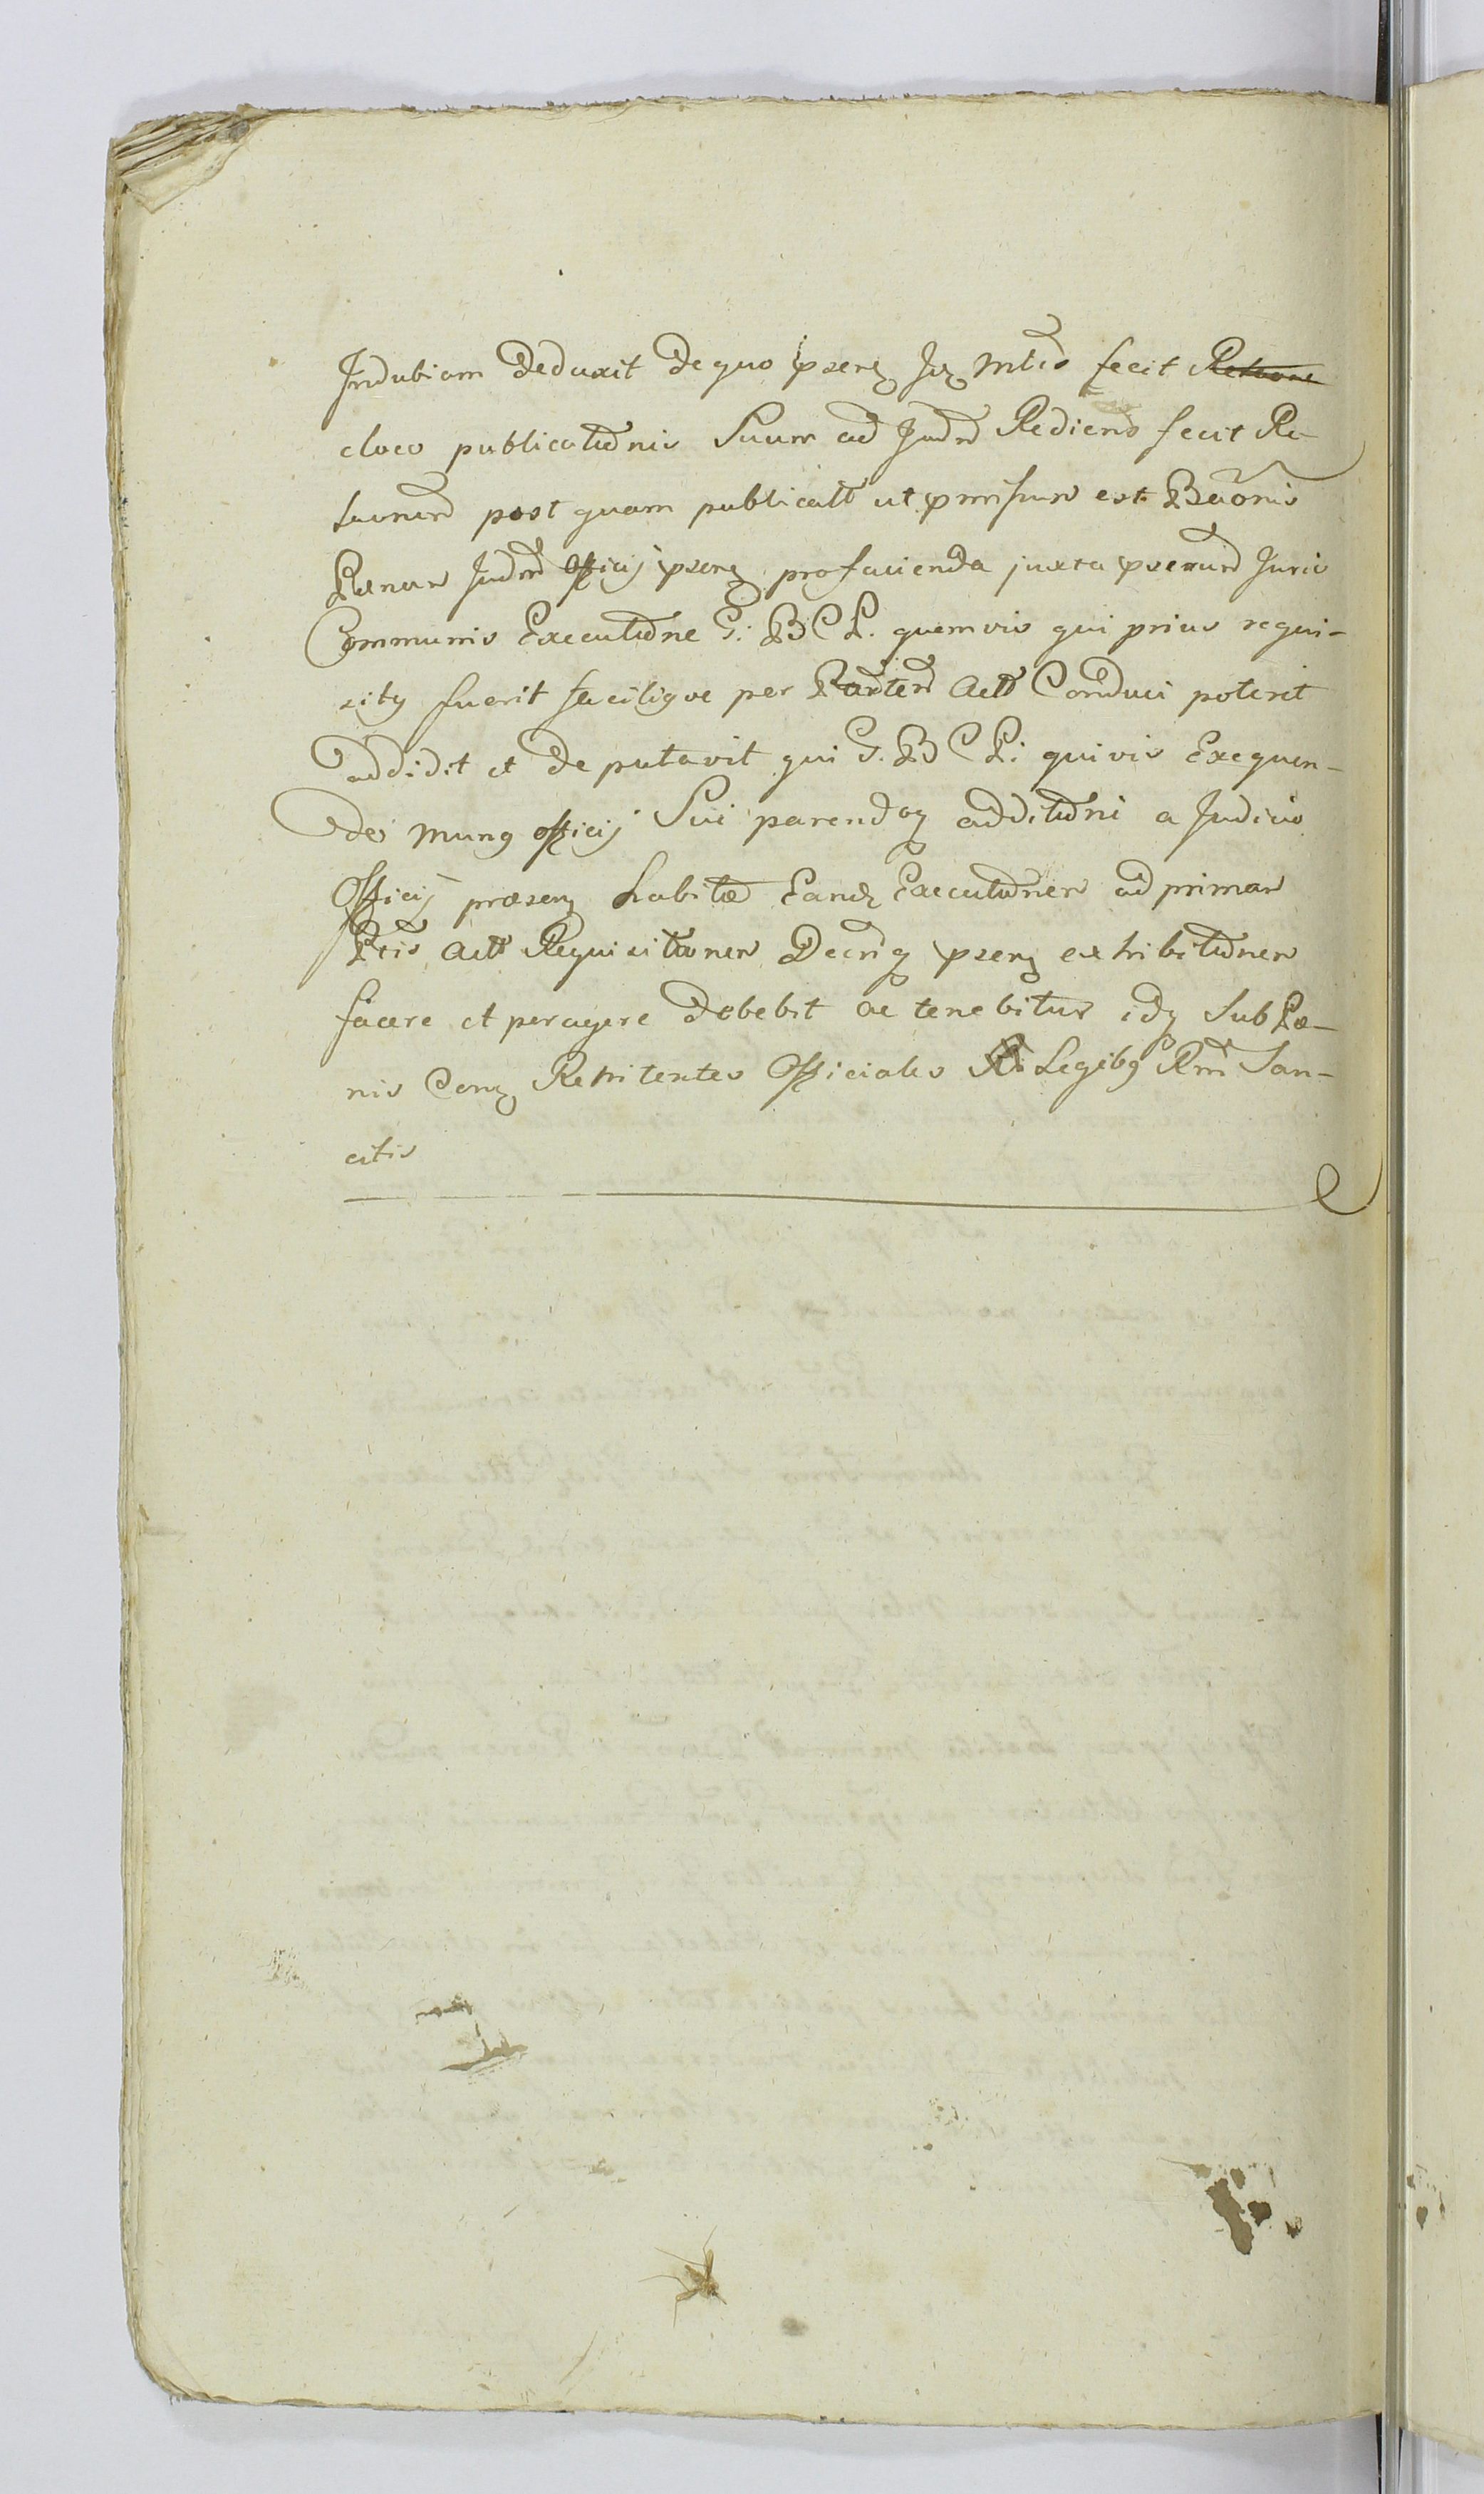 Indubiam deduxit de quo psenq Jq Mtlis fecit Retaone
eloco publicatõnis Suum ad Judm Rediens fecit Re-
laonem post quam publicatt ut pmisum est Baõnis
Pænam Judm Officij psenq pro facienda juxta psexum Juris
Communis Executõne G. B C P. quemvis qui prius requi-
sitq fuerit faciliqve per Partem Actt Conduci poterit
addidit et deputavit qui G. B C P. quivis Exequen-
do Munq officij Sui parendoq additõni a Judicio
Officij præsenq habitæ Eandq Executõnem ad primam
Ptis Actt Requisitõnem Decriq psenq exhibitõnem
facere et peragere debebit ac tenebitur idq Sub Pæ-
nis Conq Rehitentes Officiales Legibq Rni San-
citis